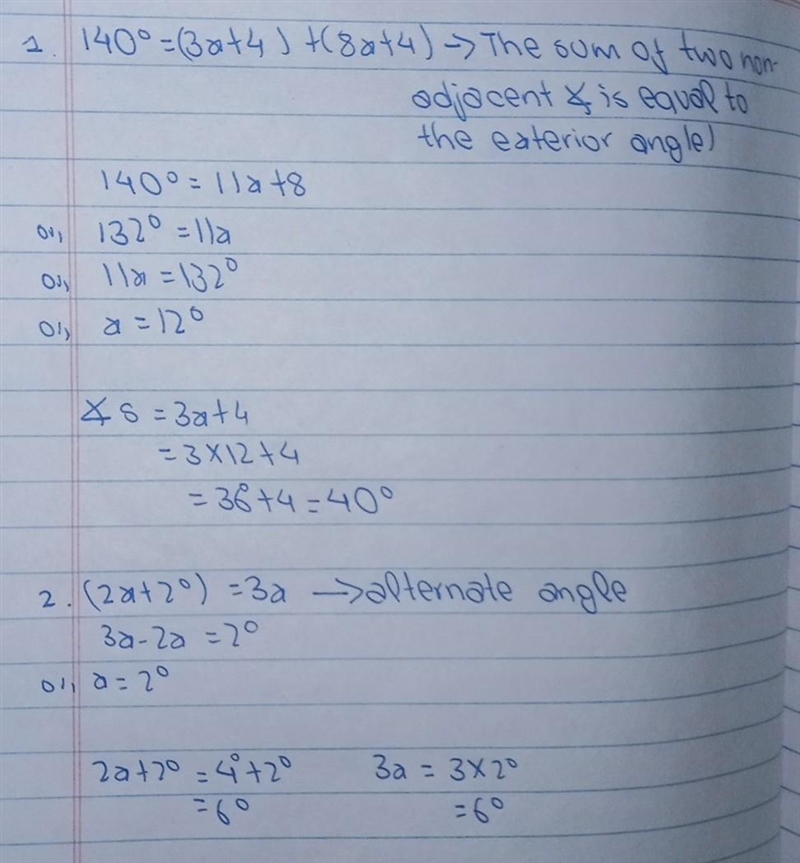 1. 140° = (3x+4) + (8x+4) → The sum of two non-
adjacent ∡s is equal to
the exterior angle)
140° = 11x+8
or, 132° = 11x
or, 11x = 132°
or, x = 12°
∡ S = 3x+4
= 3×12+4
= 36°+4 = 40°
2. (2x+2°) = 3x → alternate angle
3x-2x = 2°
or, x = 2°
2x+2° = 4°+2° 3x = 3×2°
= 6° = 6°